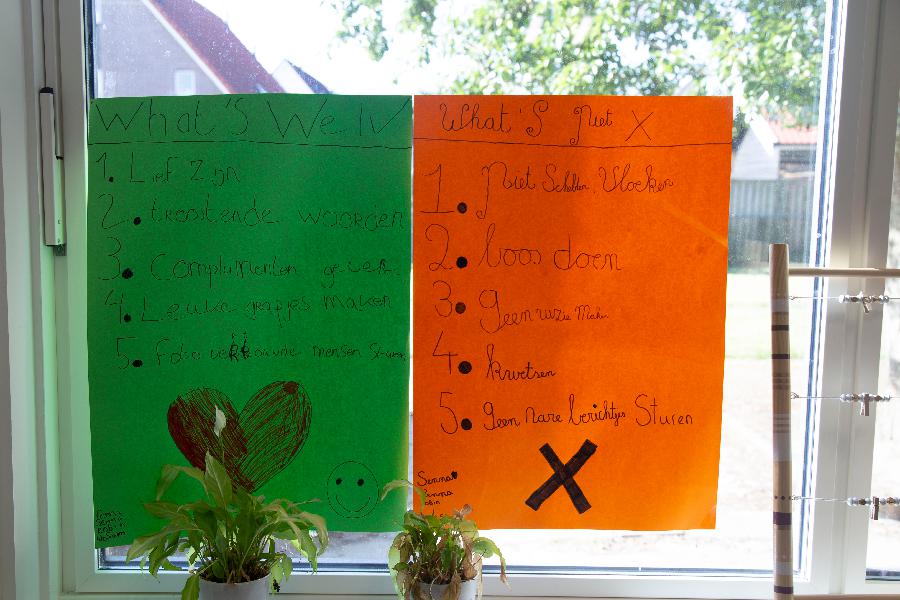 What'S Wel V
1. Lief Zijn
2. troostende woorden
3. Complimenten geven
4. Leuke grapjes maken
5. Foto vertrouwe mensen Sturen
What'S Niet X
1. Niet Schelden, Vloeken
2. boos doen
3. geen ruzie Maken
4. kwetsen
5. geen nare berichtjes Sturen
X
Senna